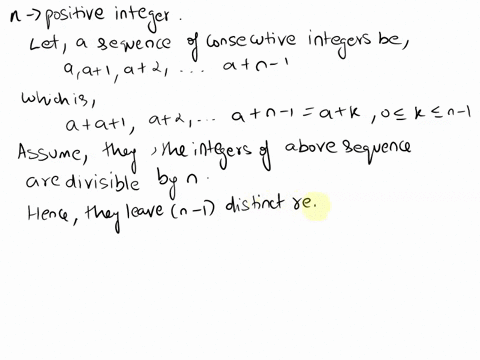 n → positive integer.
Let, a sequence of consecutive integers be,
a, a+1, a+2, ... a+n-1
which is,
a+a+1, a+2, ... a+n-1 = a+k, 0 ≤ k ≤ n-1
Assume, they, the integers of above sequence
are divisible by n.
Hence, they leave (n-1) distinct re.